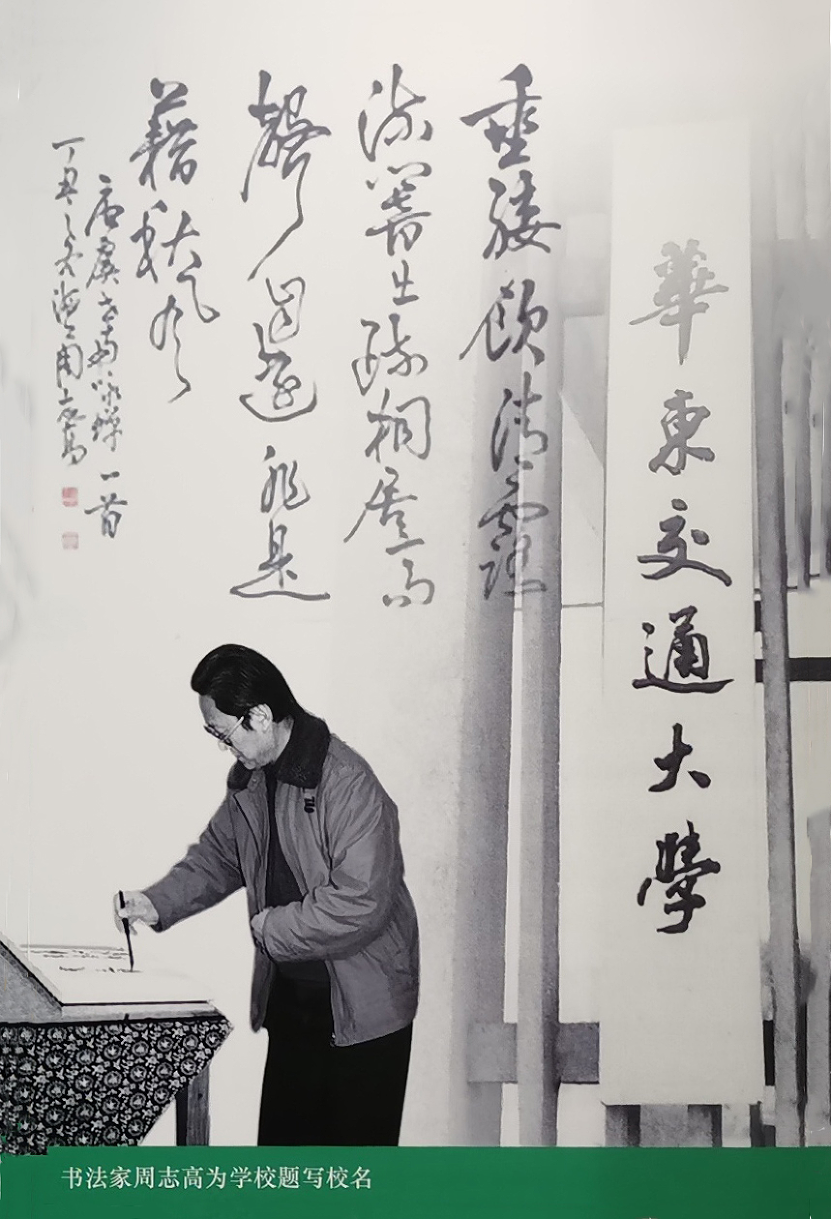 垂緌飲清露
流響出疏桐居高
聲自遠非是
藉秋風
唐虞世南詠蟬一首
丁丑之冬海上周志高
華東交通大學
书法家周志高为学校题写校名